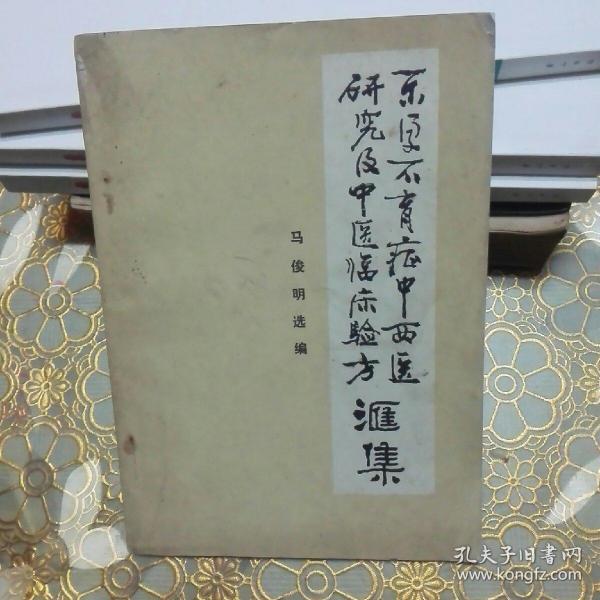 不孕不育症中西医
研究及中医临床验方
滙集
马俊明选编
孔夫子旧书网
www.kongfz.com